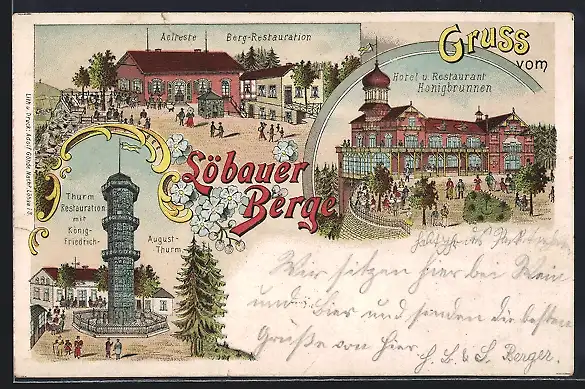 Aelteste Berg-Restauration
Gruss
vom
Hotel u. Restaurant
Honigbrunnen
Löbauer
Berge
Thurm
Restauration
mit
König-
Friedrich-
August-
Thurm
Wir sitzen hier bei Wein
und Bier und senden die besten
Grüße von hier H. B. & S. Berger